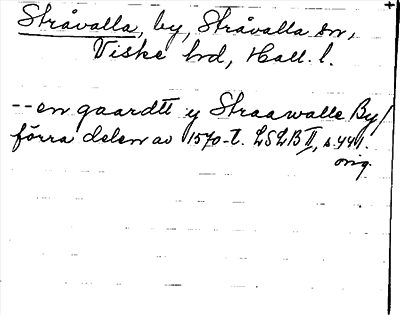 Stråvalla, by, Stråvalla sn,
Viske hd, Hall. l.
-- en gaardtt y Straawalle By/
förra delen av 1570-t. LSLB II, s. 441.
orig.